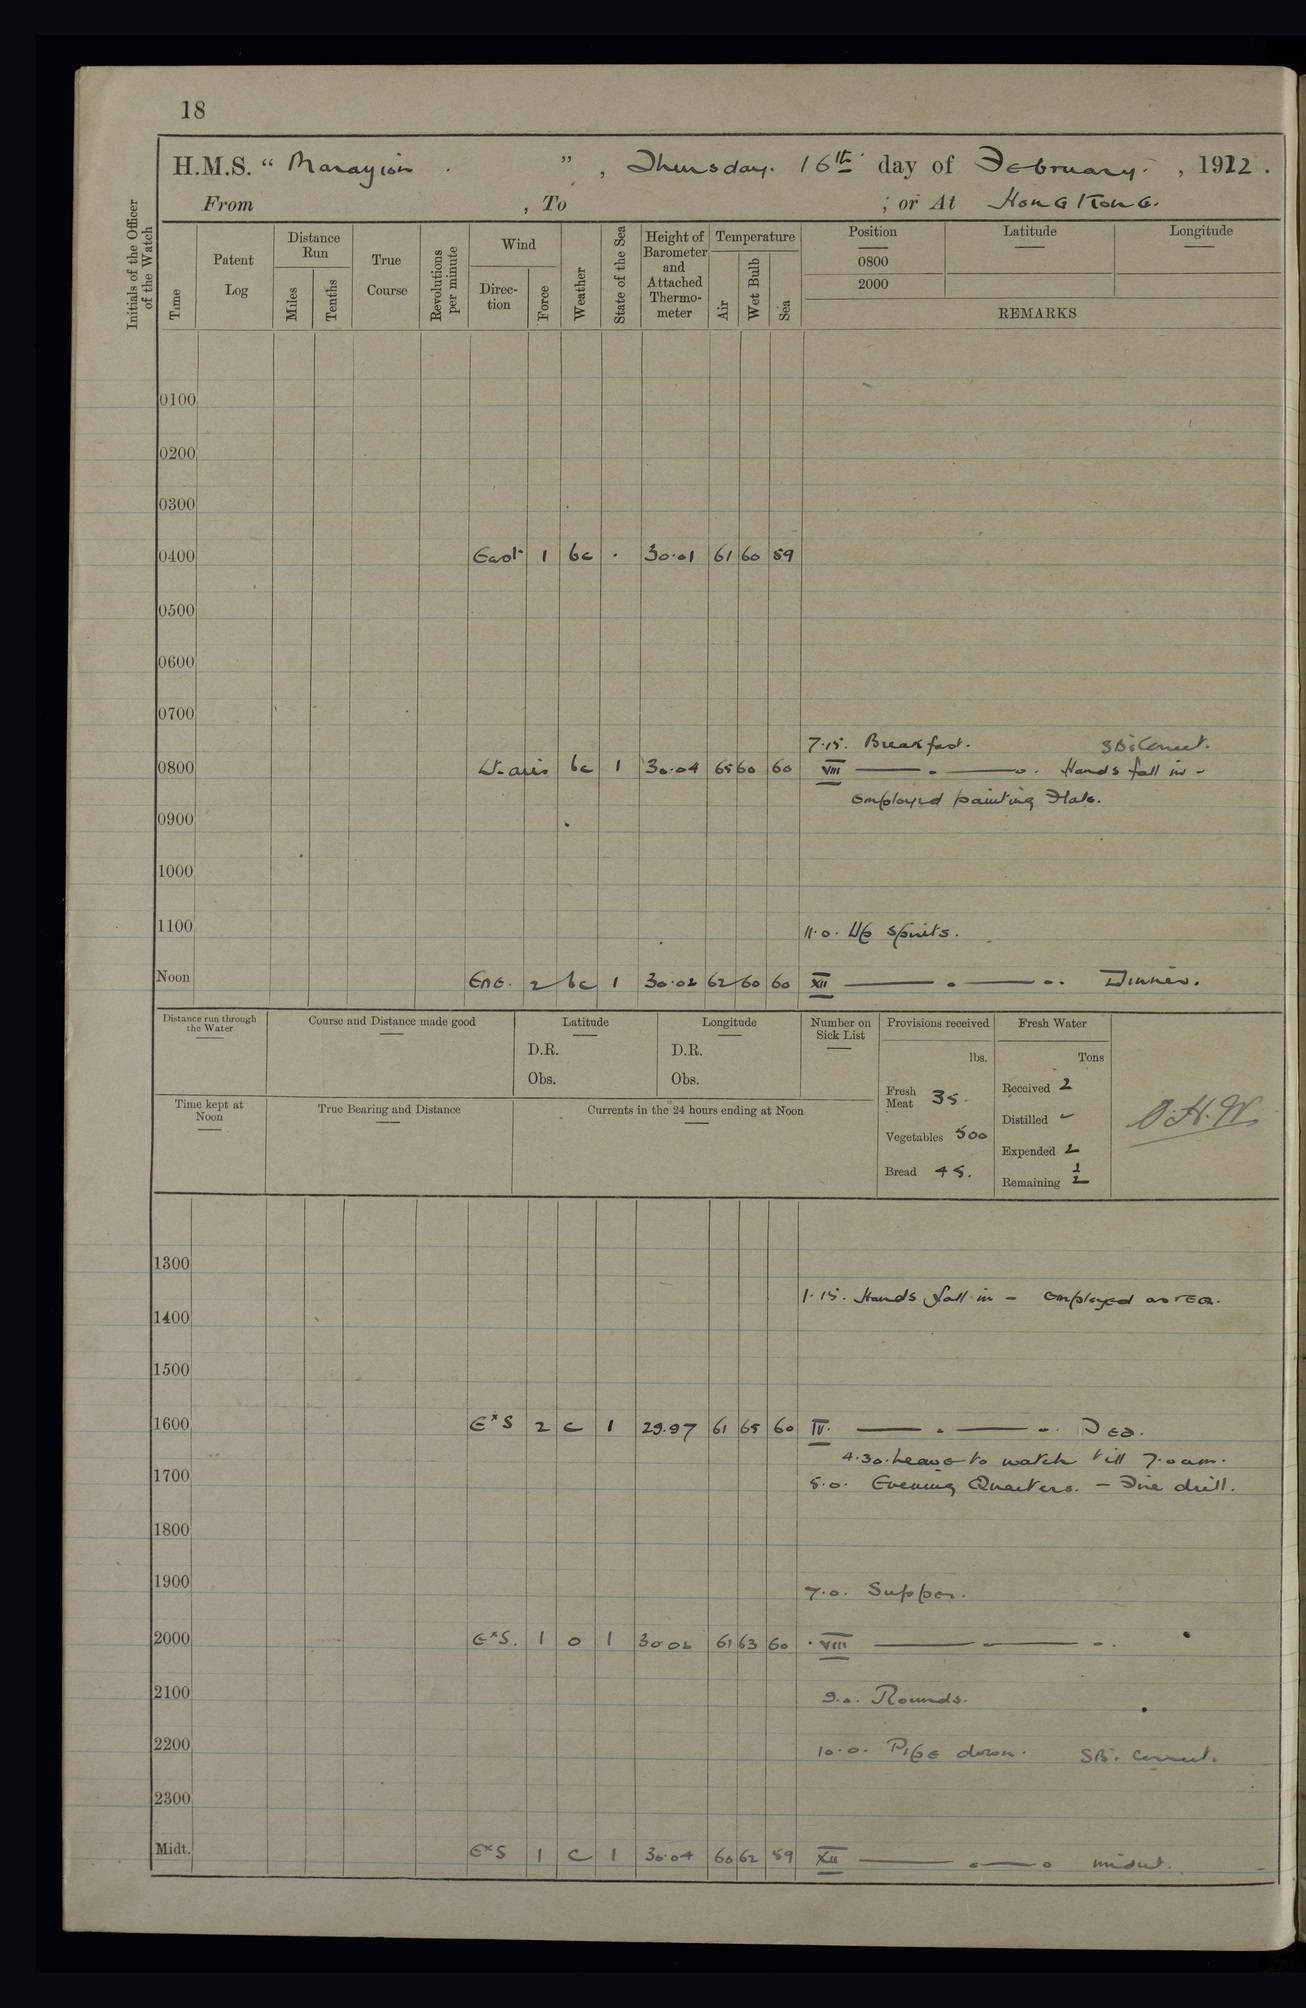 18
H.M.S. “ Marazion ” , Thursday. 16th day of February. , 1922 .
From , To ; or At Hong Kong.
Initials of the Officer of the Watch
Time
Patent Log
Distance Run
Miles
Tenths
True Course
Revolutions per minute
Wind
Direc-tion
Force
Weather
State of the Sea
Height of Barometer and Attached Thermo-meter
Temperature
Air
Wet Bulb
Sea
Position
0800
2000
Latitude
Longitude
REMARKS
0100
0200
0300
0400 East 1 bc . 30.01 61 60 59
0500
0600
0700
7.15. Breakfast. SBs Correct.
0800 Lt. airs bc 1 30.04 65 60 60 VIII Hands fall in -
employed painting Flats.
0900
1000
1100 11.0. Up Spirits.
Noon ENE. 2 bc 1 30.02 62 60 60 XII Dinner.
Distance run through the Water
Course and Distance made good
Latitude
D.R.
Obs.
Longitude
D.R.
Obs.
Number on Sick List
Provisions received
lbs.
Fresh Meat 35.
Vegetables 500
Bread 45.
Fresh Water
Tons
Received 2
Distilled -
Expended 2
Remaining 1/2
Time kept at Noon
True Bearing and Distance
Currents in the 24 hours ending at Noon
1300
1.15. Hands fall in - employed as req.
1400
1500
1600 ExS 2 c 1 29.97 61 65 60 IV. Tea.
4.30. Leave to watch till 7.0 am.
1700 5.0. Evening Quarters. - Fire drill.
1800
1900 7.0. Supper.
2000 ExS. 1 o 1 30 02 61 63 60 VIII
2100 9.0. Rounds.
2200 10.0. Pipe down. SB. Correct.
2300
Midt. ExS 1 c 1 30.04 60 62 59 XII midnt.